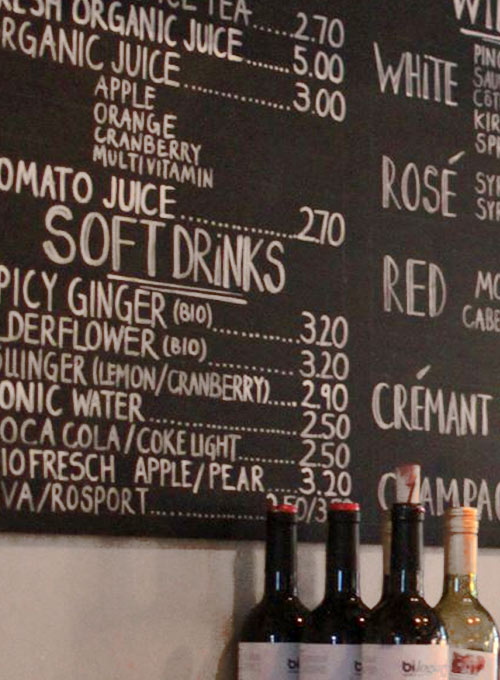 ICE TEA.....2.70
RESH ORGANIC JUICE......5.00
RGANIC JUICE............3.00
APPLE
ORANGE
CRANBERRY
MULTIVITAMIN
OMATO JUICE............2.70
SOFT DRINKS
PICY GINGER (BIO)............3.20
LDERFLOWER (BIO)............3.20
LLINGER (LEMON/CRANBERRY).....2.90
ONIC WATER............2.50
OCA COLA/COKE LIGHT.......2.50
IOFRESCH APPLE/PEAR......3.20
VA/ROSPORT............2.50/3.
WHITE
PINO
SAU
CÔT
KIR
SPR
ROSÉ
SY
SY
RED
MO
CABE
CRÉMANT
CHAMPAG
bi
bi
bi